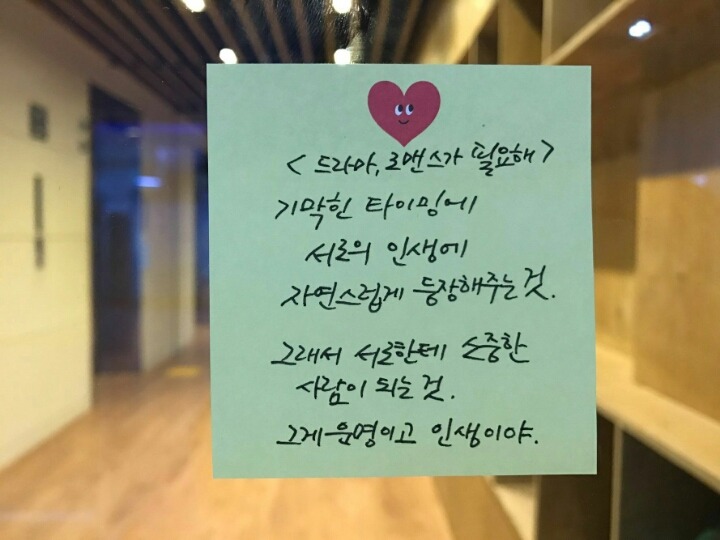 <드라마, 로맨스가 필요해>
기막힌 타이밍에
서로의 인생에
자연스럽게 등장해주는 것.
그래서 서로한테 소중한
사람이 되는 것.
그게 운명이고 인생이야.